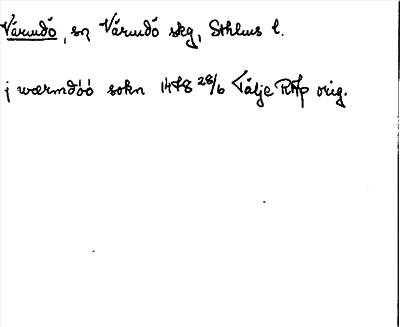 Värmdö, sn Värmdö skg, Sthlms l.
j wærmdöö sokn 1478 28/6 Tälje RAp orig.